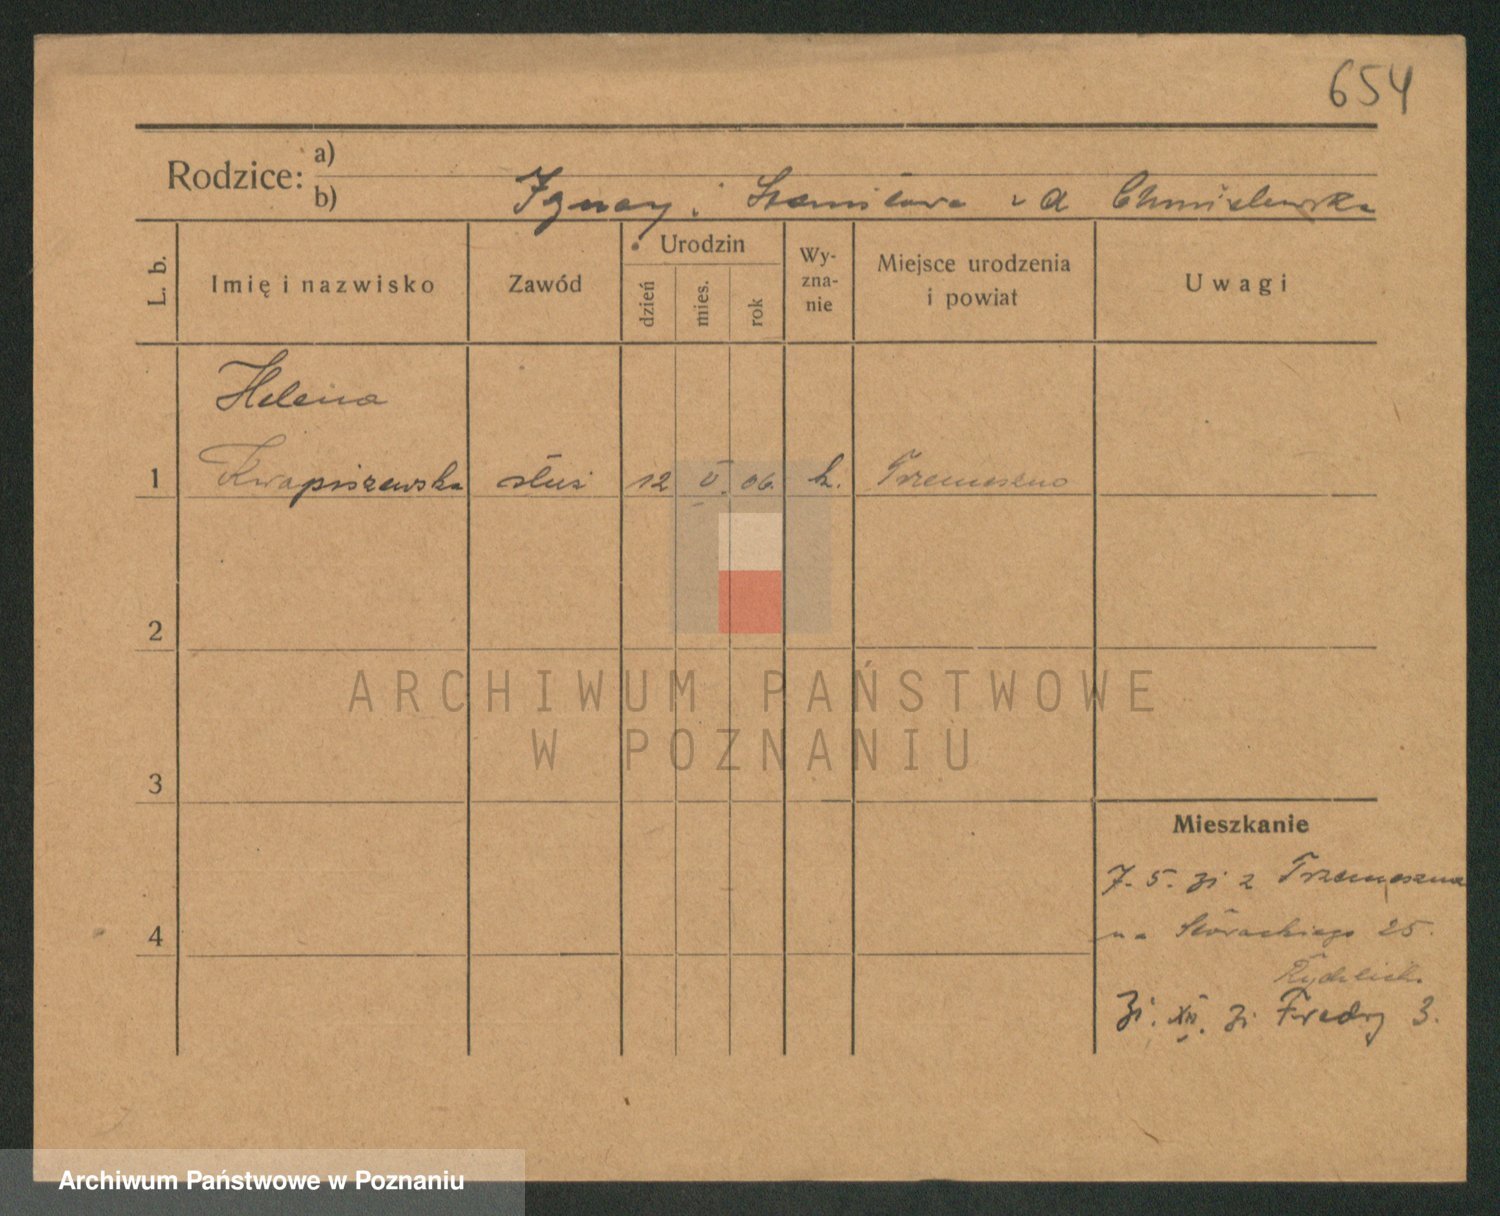 654
Rodzice: a)
b) Ignacy i Stanisława z d Chmielewska
L. b.
Imię i nazwisko
Zawód
Urodzin
dzień
mies.
rok
Wy-
zna-
nie
Miejsce urodzenia
i powiat
Uwagi
Helena
1 Kwapiszewska służ 12 V. 06. k. Trzemeszno
2
ARCHIWUM PAŃSTWOWE
W POZNANIU
3
Mieszkanie
7. 5. 31 z Trzemeszna
4
na Skórackiego 25.
31. XII. 31 Fredry 3.
Archiwum Państwowe w Poznaniu